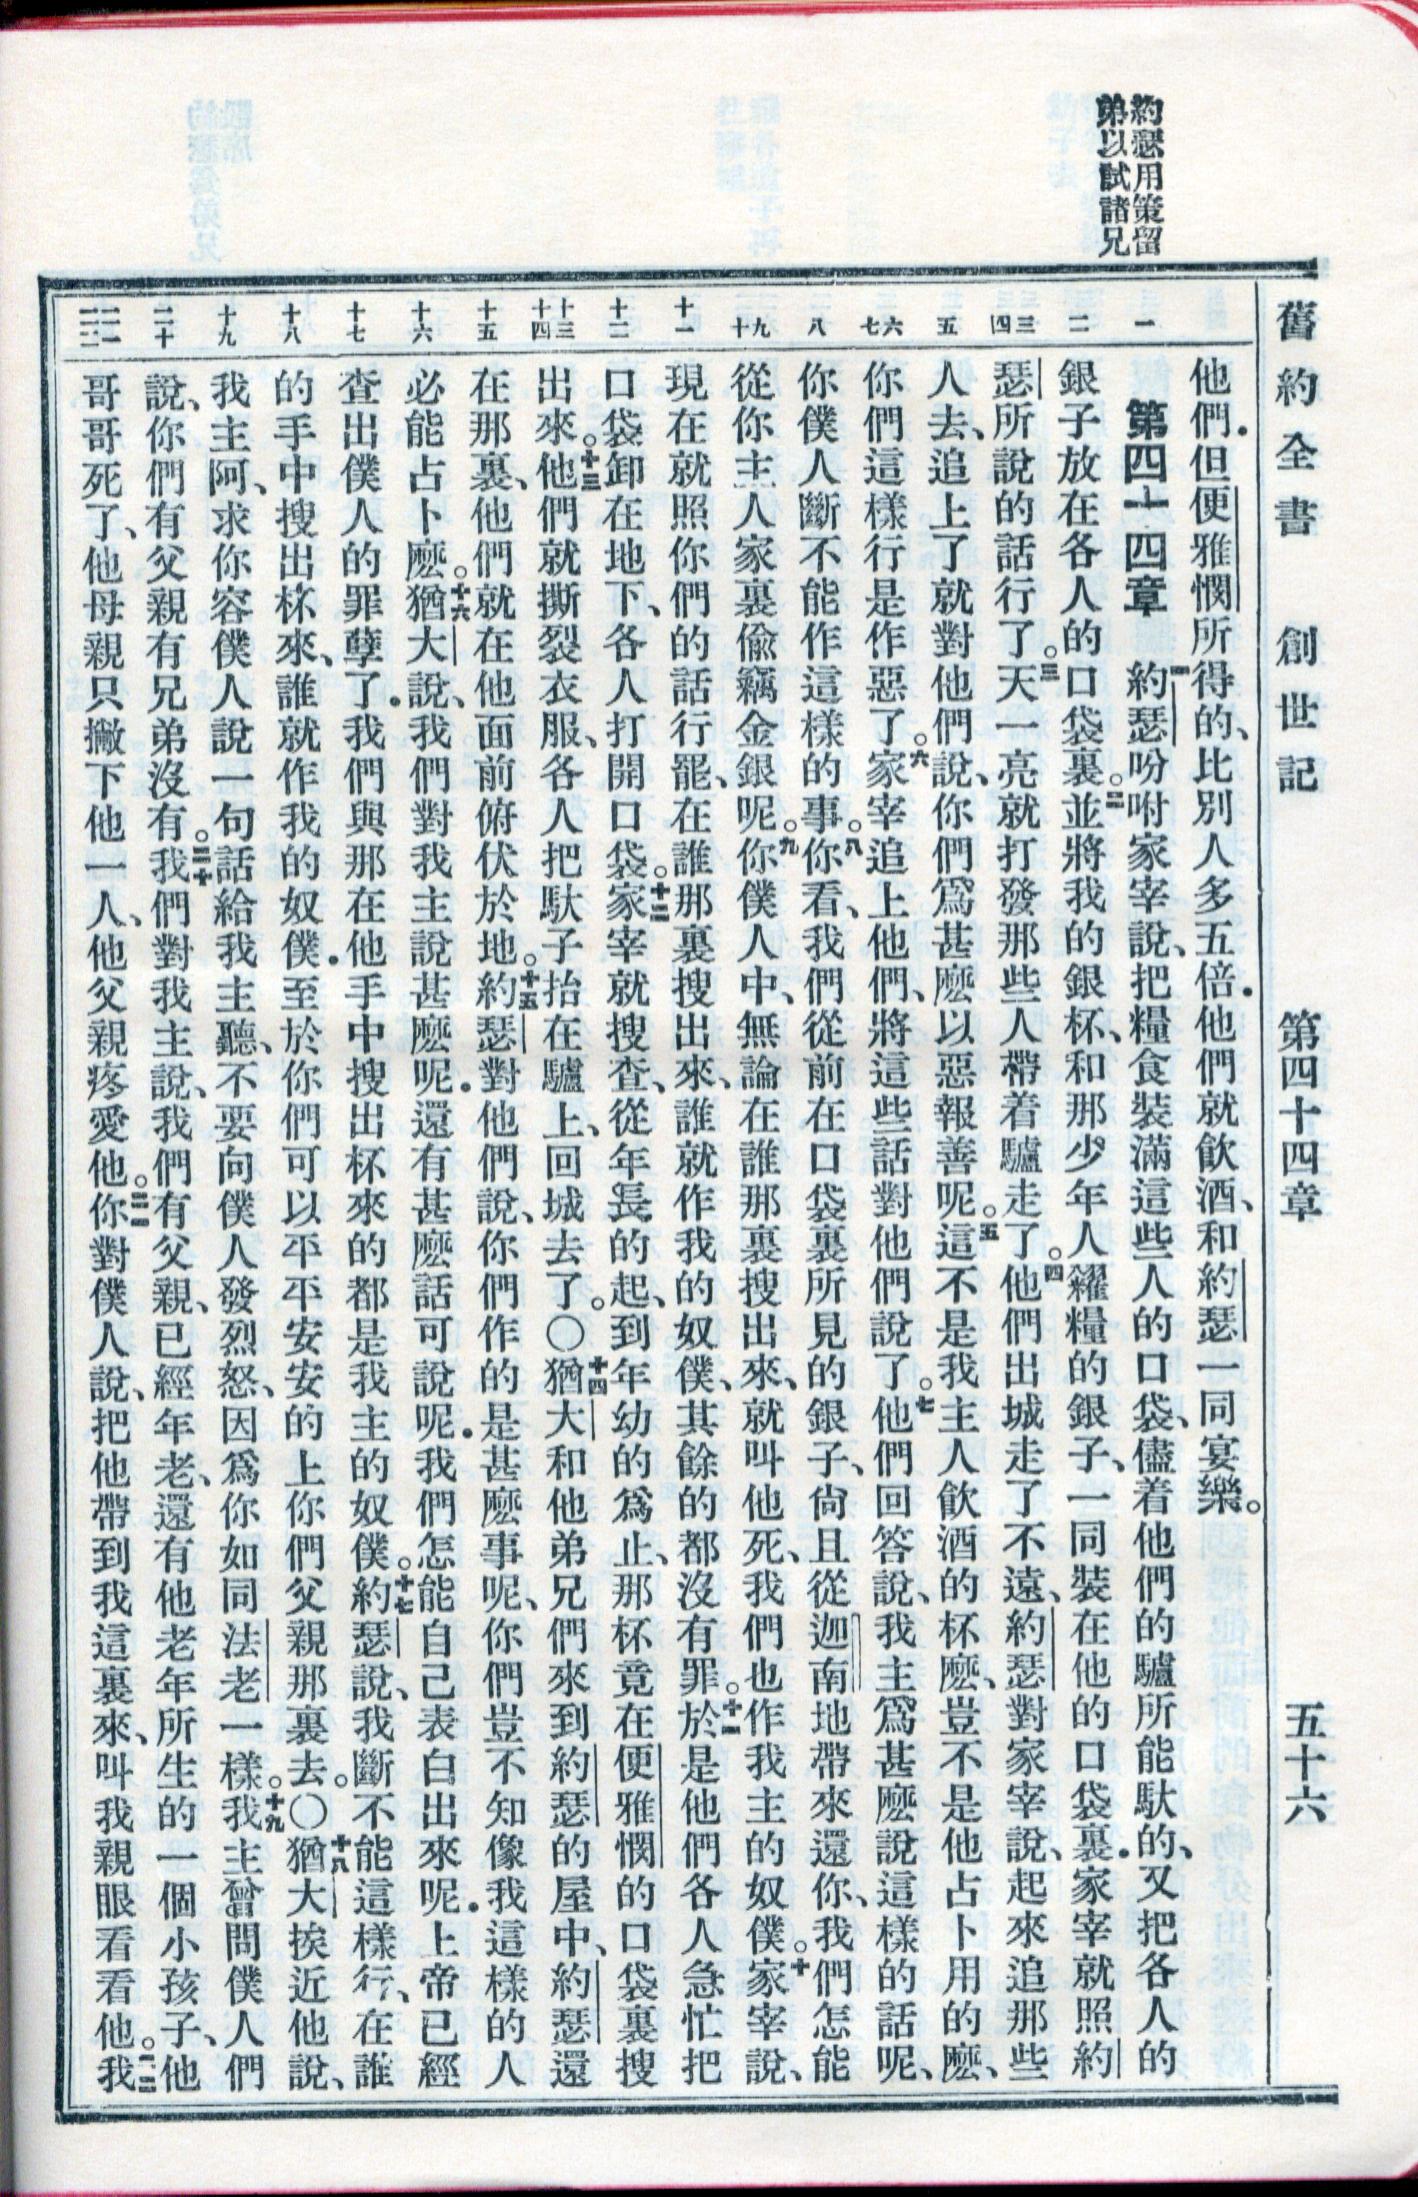 舊約全書　創世記　第四十四章　五十六
約瑟用策留
弟以試諸兄
他們．但便雅憫所得的、比別人多五倍．他們就飲酒、和約瑟一同宴樂。
第四十四章　一約瑟吩咐家宰說、把糧食裝滿這些人的口袋、儘着他們的驢所能馱的、又把各人的
銀子放在各人的口袋裏。二並將我的銀杯、和那少年人糴糧的銀子、一同裝在他的口袋裏．家宰就照約
瑟所說的話行了。三天一亮就打發那些人帶着驢走了。四他們出城走了不遠、約瑟對家宰說、起來追那些
人去、追上了就對他們說、你們爲甚麽以惡報善呢。五這不是我主人飲酒的杯麽、豈不是他占卜用的麽、
你們這樣行是作惡了。六家宰追上他們、將這些話對他們說了。七他們回答說、我主爲甚麽說這樣的話呢、
你僕人斷不能作這樣的事。八你看、我們從前在口袋裏所見的銀子、尙且從迦南地帶來還你、我們怎能
從你主人家裏偷竊金銀呢。九你僕人中、無論在誰那裏搜出來、就叫他死、我們也作我主的奴僕。十家宰說、
現在就照你們的話行罷、在誰那裏搜出來、誰就作我的奴僕、其餘的都沒有罪。十一於是他們各人急忙把
口袋卸在地下、各人打開口袋。十二家宰就搜查、從年長的起、到年幼的爲止、那杯竟在便雅憫的口袋裏搜
出來。十三他們就撕裂衣服、各人把馱子抬在驢上、回城去了。〇十四猶大和他弟兄們來到約瑟的屋中、約瑟還
在那裏、他們就在他面前俯伏於地。十五約瑟對他們說、你們作的是甚麽事呢、你們豈不知像我這樣的人
必能占卜麽。十六猶大說、我們對我主說甚麽呢．還有甚麽話可說呢．我們怎能自己表白出來呢．上帝已經
查出僕人的罪孽了．我們與那在他手中搜出杯來的都是我主的奴僕。十七約瑟說、我斷不能這樣行、在誰
的手中搜出杯來、誰就作我的奴僕．至於你們可以平平安安的上你們父親那裏去。〇十八猶大挨近他說、
我主阿、求你容僕人說一句話給我主聽、不要向僕人發烈怒、因爲你如同法老一樣。十九我主曾問僕人們
說、你們有父親有兄弟沒有。二十我們對我主說、我們有父親、已經年老、還有他老年所生的一個小孩子、他
哥哥死了、他母親只撇下他一人、他父親疼愛他。二一你對僕人說、把他帶到我這裏來、叫我親眼看看他。二二我
一
二
三 四
五
六 七
八
九 十
十一
十二
十三 十四
十五
十六
十七
十八
十九
二十
二一 二二